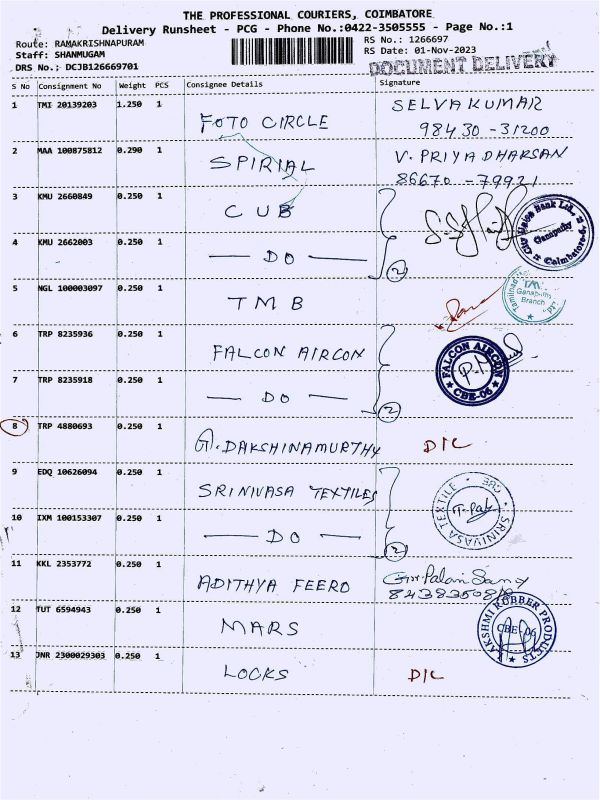 THE PROFESSIONAL COURIERS, COIMBATORE
Delivery Runsheet - PCG - Phone No.:0422-3505555 - Page No.:1
Route: RAMAKRISHNAPURAM
Staff: SHANMUGAM
DRS No.: DCJB126669701
RS No.: 1266697
RS Date: 01-Nov-2023
DOCUMENT DELIVERY
S No Consignment No Weight PCS Consignee Details Signature
1 TMI 20139203 1.250 1 FOTO CIRCLE SELVA KUMAR
98430-31200
2 MAA 100875812 0.290 1 SPIRIAL V. PRIYA DHARSAN
86670-79921
3 KMU 2660849 0.250 1 CUB
City Union Bank Ltd., Ganapathy Coimbatore-6.
4 KMU 2662003 0.250 1 — DO — 2
5 NGL 100003097 0.250 1 TMB
Tamilnad TMB Ganapathy Branch
6 TRP 8235936 0.250 1 FALCON AIRCON
FALCON AIRCON CBE-06
7 TRP 8235918 0.250 1 — DO — 2
8 TRP 4880693 0.250 1 G. DAKSHINAMURTHY D/C
9 EDQ 10626094 0.250 1 SRINIVASA TEXTILES
SRINIVASA TEXTILE CBE
10 IXM 100153307 0.250 1 — DO — 2
11 KKL 2353772 0.250 1 ADITHYA FEERO
12 TUT 6594943 0.250 1 MARS
LAKSHMI RUBBER PRODUCTS CBE-06
13 JNR 2300029303 0.250 1 LOCKS D/C